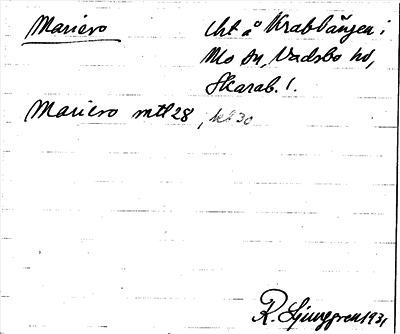 Mariero lht å Krabbängen i
Mo sn, Vadsbo hd,
Skarab. l.
Mariero mtl 28, kt 30
R. Ljunggren 1931